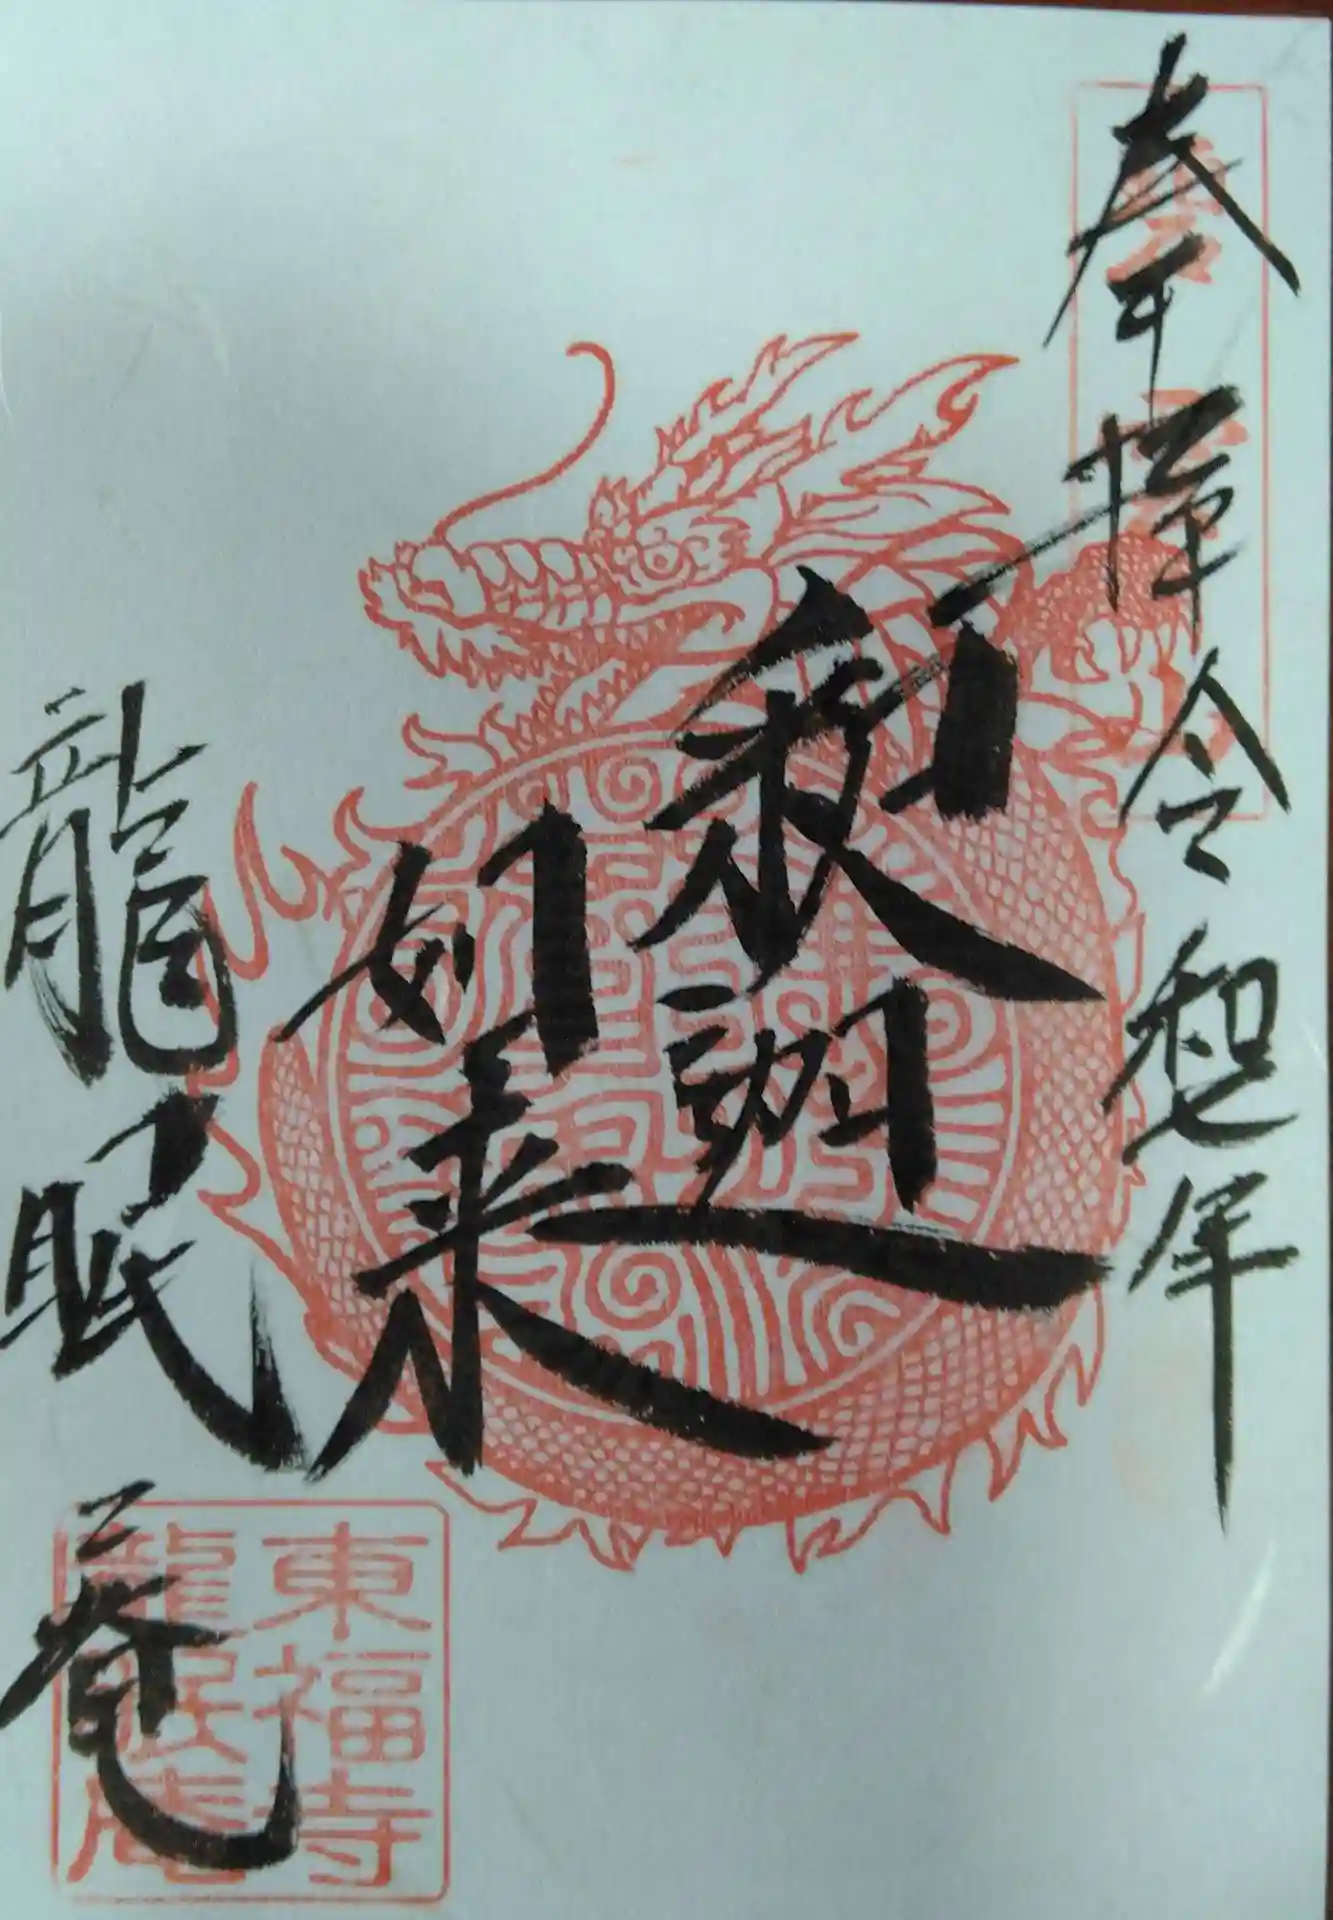 奉拝令和七年
釈迦
如来
龍眠庵
東福寺
龍眠庵